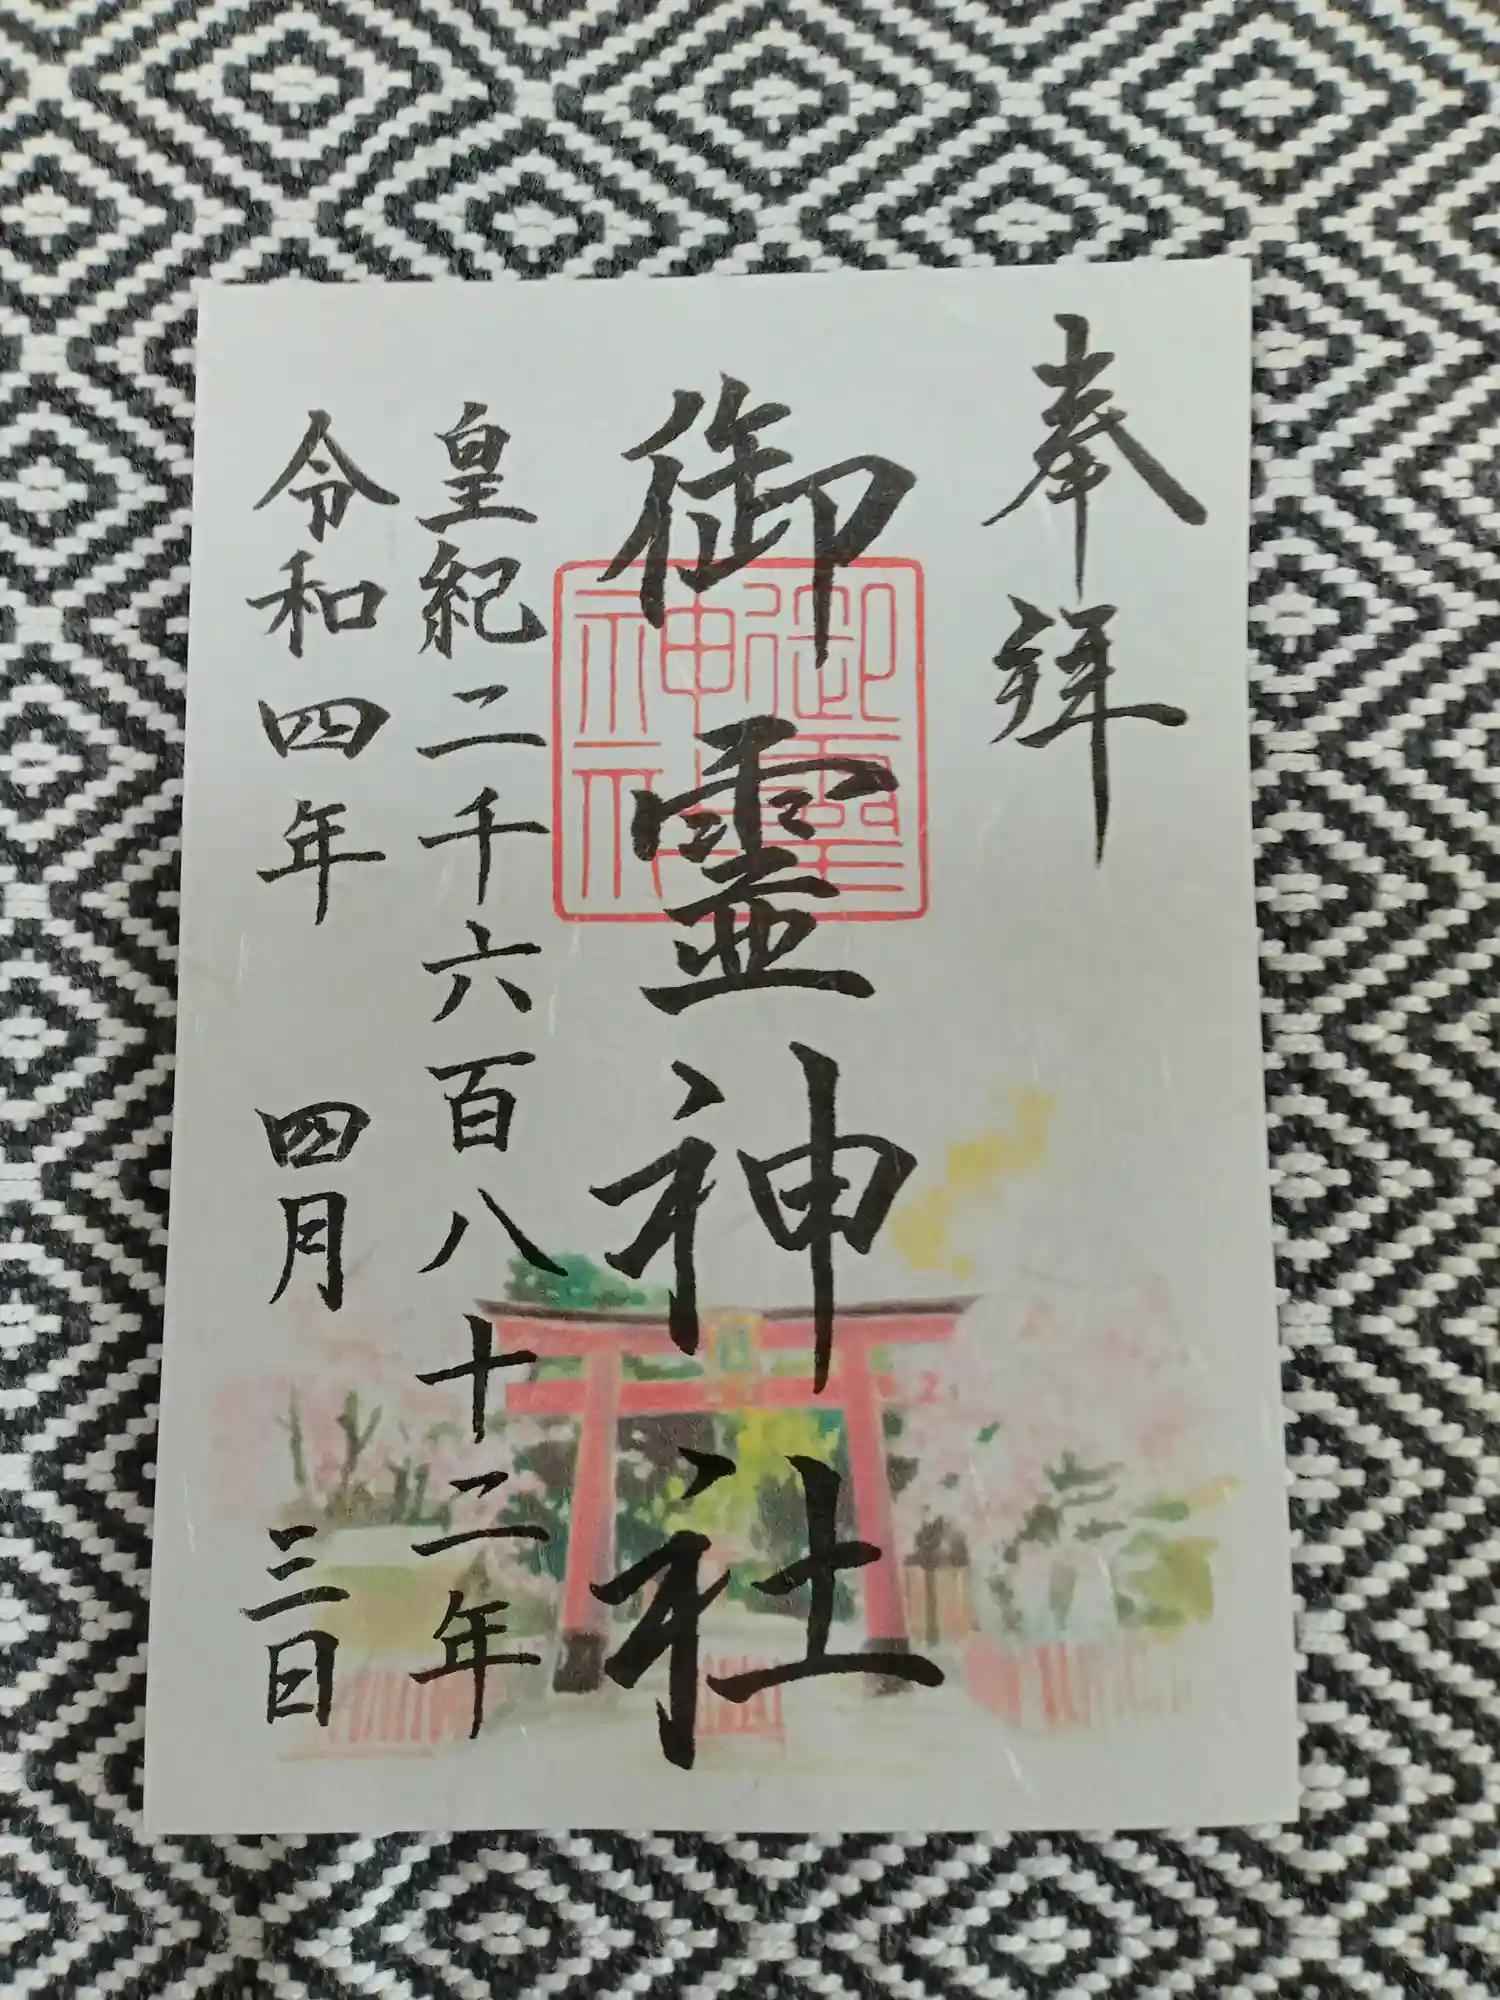 奉拝
御霊神社
御霊神社
皇紀二千六百八十二年
令和四年 四月 三日